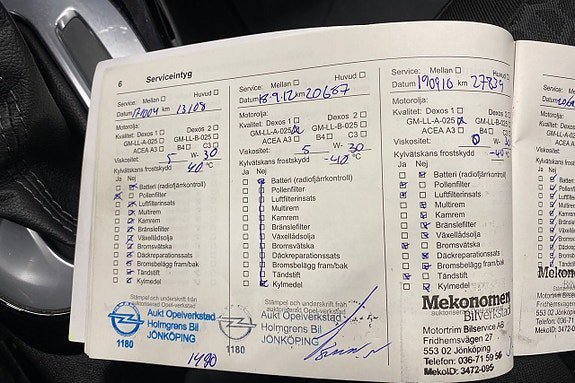 6 Serviceintyg
Service: Mellan Huvud
Datum 171004 km 13108
Motorolja:
Kvalitet: Dexos 1 Dexos 2
GM-LL-A-025 GM-LL-B-025
ACEA A3 B4 C3
Viskositet: 5 W- 30
Kylvätskans frostskydd -40 °C
Ja Nej
Batteri (radiofjärrkontroll)
Pollenfilter
Luftfilterinsats
Multirem
Kamrem
Bränslefilter
Växellådsolja
Bromsvätska
Däckreparationssats
Bromsbelägg fram/bak
Tändstift
Kylmedel
Stämpel och underskrift från
auktoriserad Opel-verkstad
Aukt Opelverkstad
Holmgrens Bil
JÖNKÖPING
1180
Service: Mellan Huvud
Datum 18-9.12 km 20667
Motorolja:
Kvalitet: Dexos 1 Dexos 2
GM-LL-A-025 GM-LL-B-025
ACEA A3 B4 C3
Viskositet: 5 W- 30
Kylvätskans frostskydd -40 °C
Ja Nej
Batteri (radiofjärrkontroll)
Pollenfilter
Luftfilterinsats
Multirem
Kamrem
Bränslefilter
Växellådsolja
Bromsvätska
Däckreparationssats
Bromsbelägg fram/bak
Tändstift
Kylmedel
Stämpel och underskrift från
auktoriserad Opel-verkstad
Aukt Opelverkstad
Holmgrens Bil
JÖNKÖPING
1180
Service: Mellan Huvud
Datum 190916 km 27839
Motorolja:
Kvalitet: Dexos 1 Dexos 2
GM-LL-A-025 GM-LL-B-025
ACEA A3 B4 C3
Viskositet: 0 W- 30
Kylvätskans frostskydd -40 °C
Ja Nej
Batteri (radiofjärrkontroll)
Pollenfilter
Luftfilterinsats
Multirem
Kamrem
Bränslefilter
Växellådsolja
Bromsvätska
Däckreparationssats
Bromsbelägg fram/bak
Tändstift
Kylmedel
Mekonomen
Bilverkstad
Motortrim Bilservice AB
Fridhemsvägen 27
553 02 Jönköping
Telefon: 036-71 59 56
MekoID: 3472-095
Service:
Datum
Motorolja:
Kvalitet: D
GM-LL
ACE
Viskositet:
Kylvätskans
Ja Nej
Batt
Poll
Luft
Mul
Kar
Brä
Väx
Bro
Däc
Bro
Motortrim
Fridhemsv
553 02 Jön
Telefon: 0
MekoID: 3